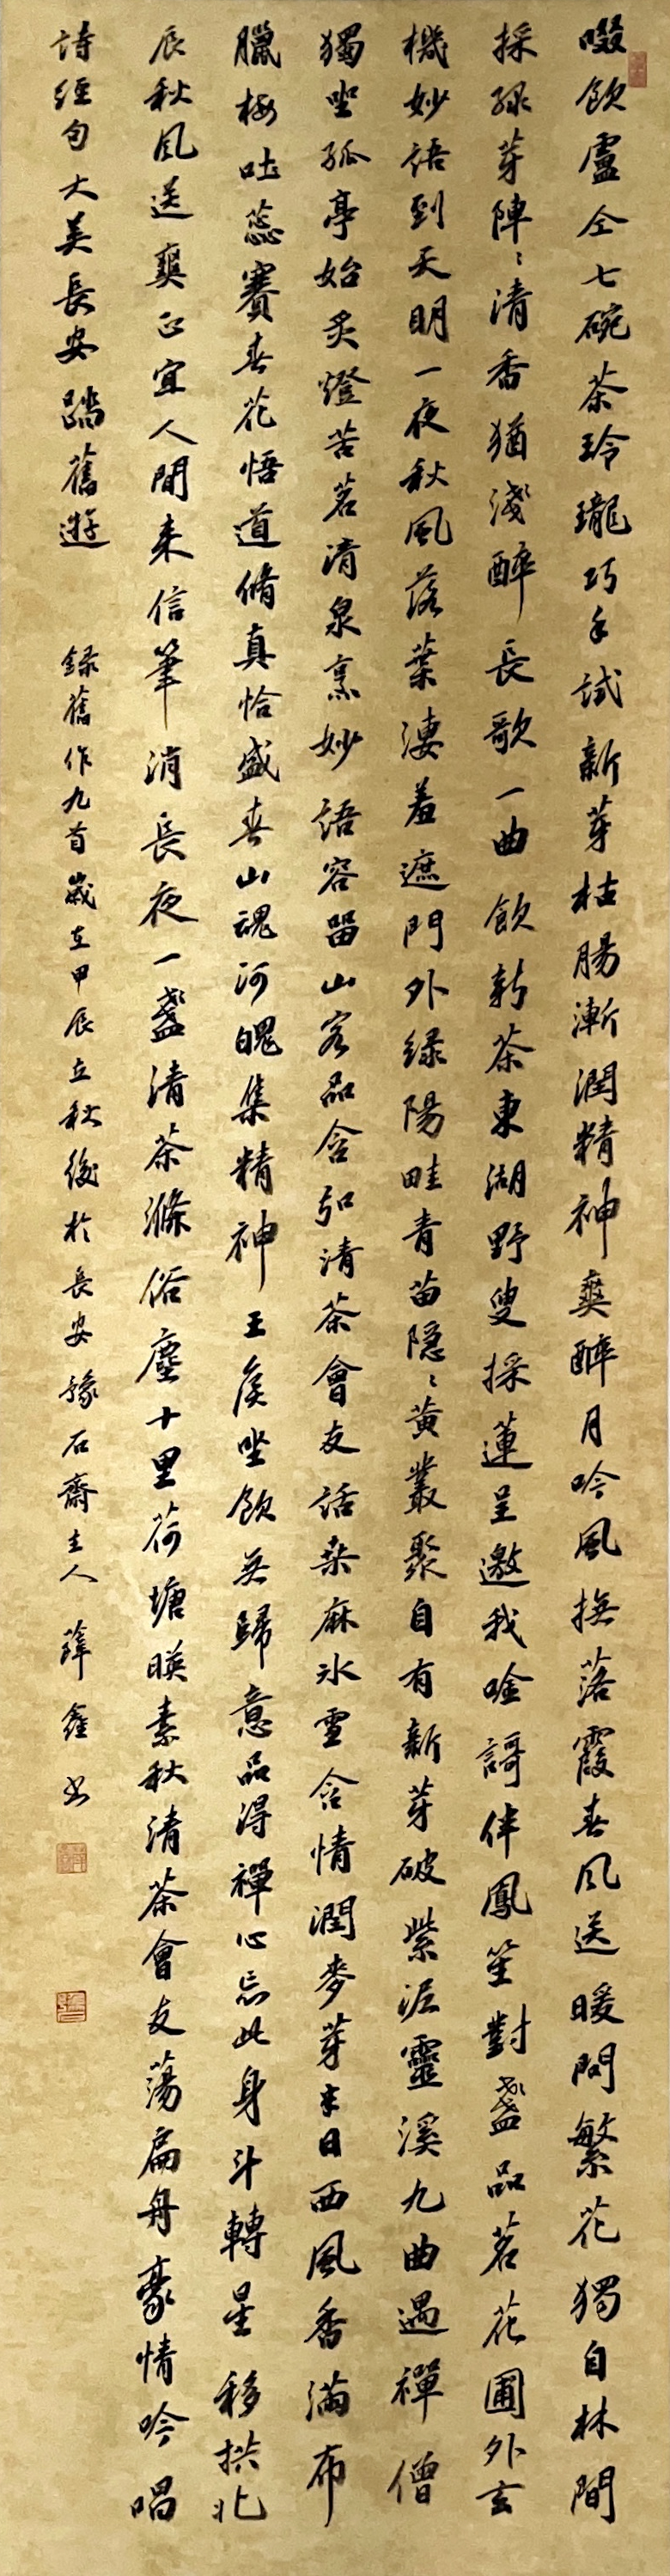 啜飲盧仝七碗茶玲瓏巧手試新芽枯腸漸潤精神爽醉月吟風撫落霞春風送暖問繁花獨自林間
採綠芽陣〻清香猶淺醉長歌一曲飲新茶東湖野叟採蓮呈邀我唅謌伴鳳笙對盞品茗花圃外玄
機妙語到天明一夜秋風落葉淒羞遮門外綠陽畦青苗隱〻黃叢聚自有新芽破紫泥靈溪九曲遇禪僧
獨坐孤亭始炙燈苦茗清泉烹妙語容留山客品含弘清茶會友話桑麻冰雪含情潤麥芽末日西風香滿布
臘梅吐蕊賽春花悟道脩真恰盛春山魂河魄集精神王侯坐飲英歸意品得禪心忘此身斗轉星移拱北
辰秋風送爽正宜人閒來信筆消長夜一盞清茶滌俗塵十里荷塘暎素秋清茶會友蕩扁舟豪情吟唱
詩經句大美長安踏舊遊
錄舊作九首歲在甲辰立秋後於長安豫石齋主人 薛鑫書